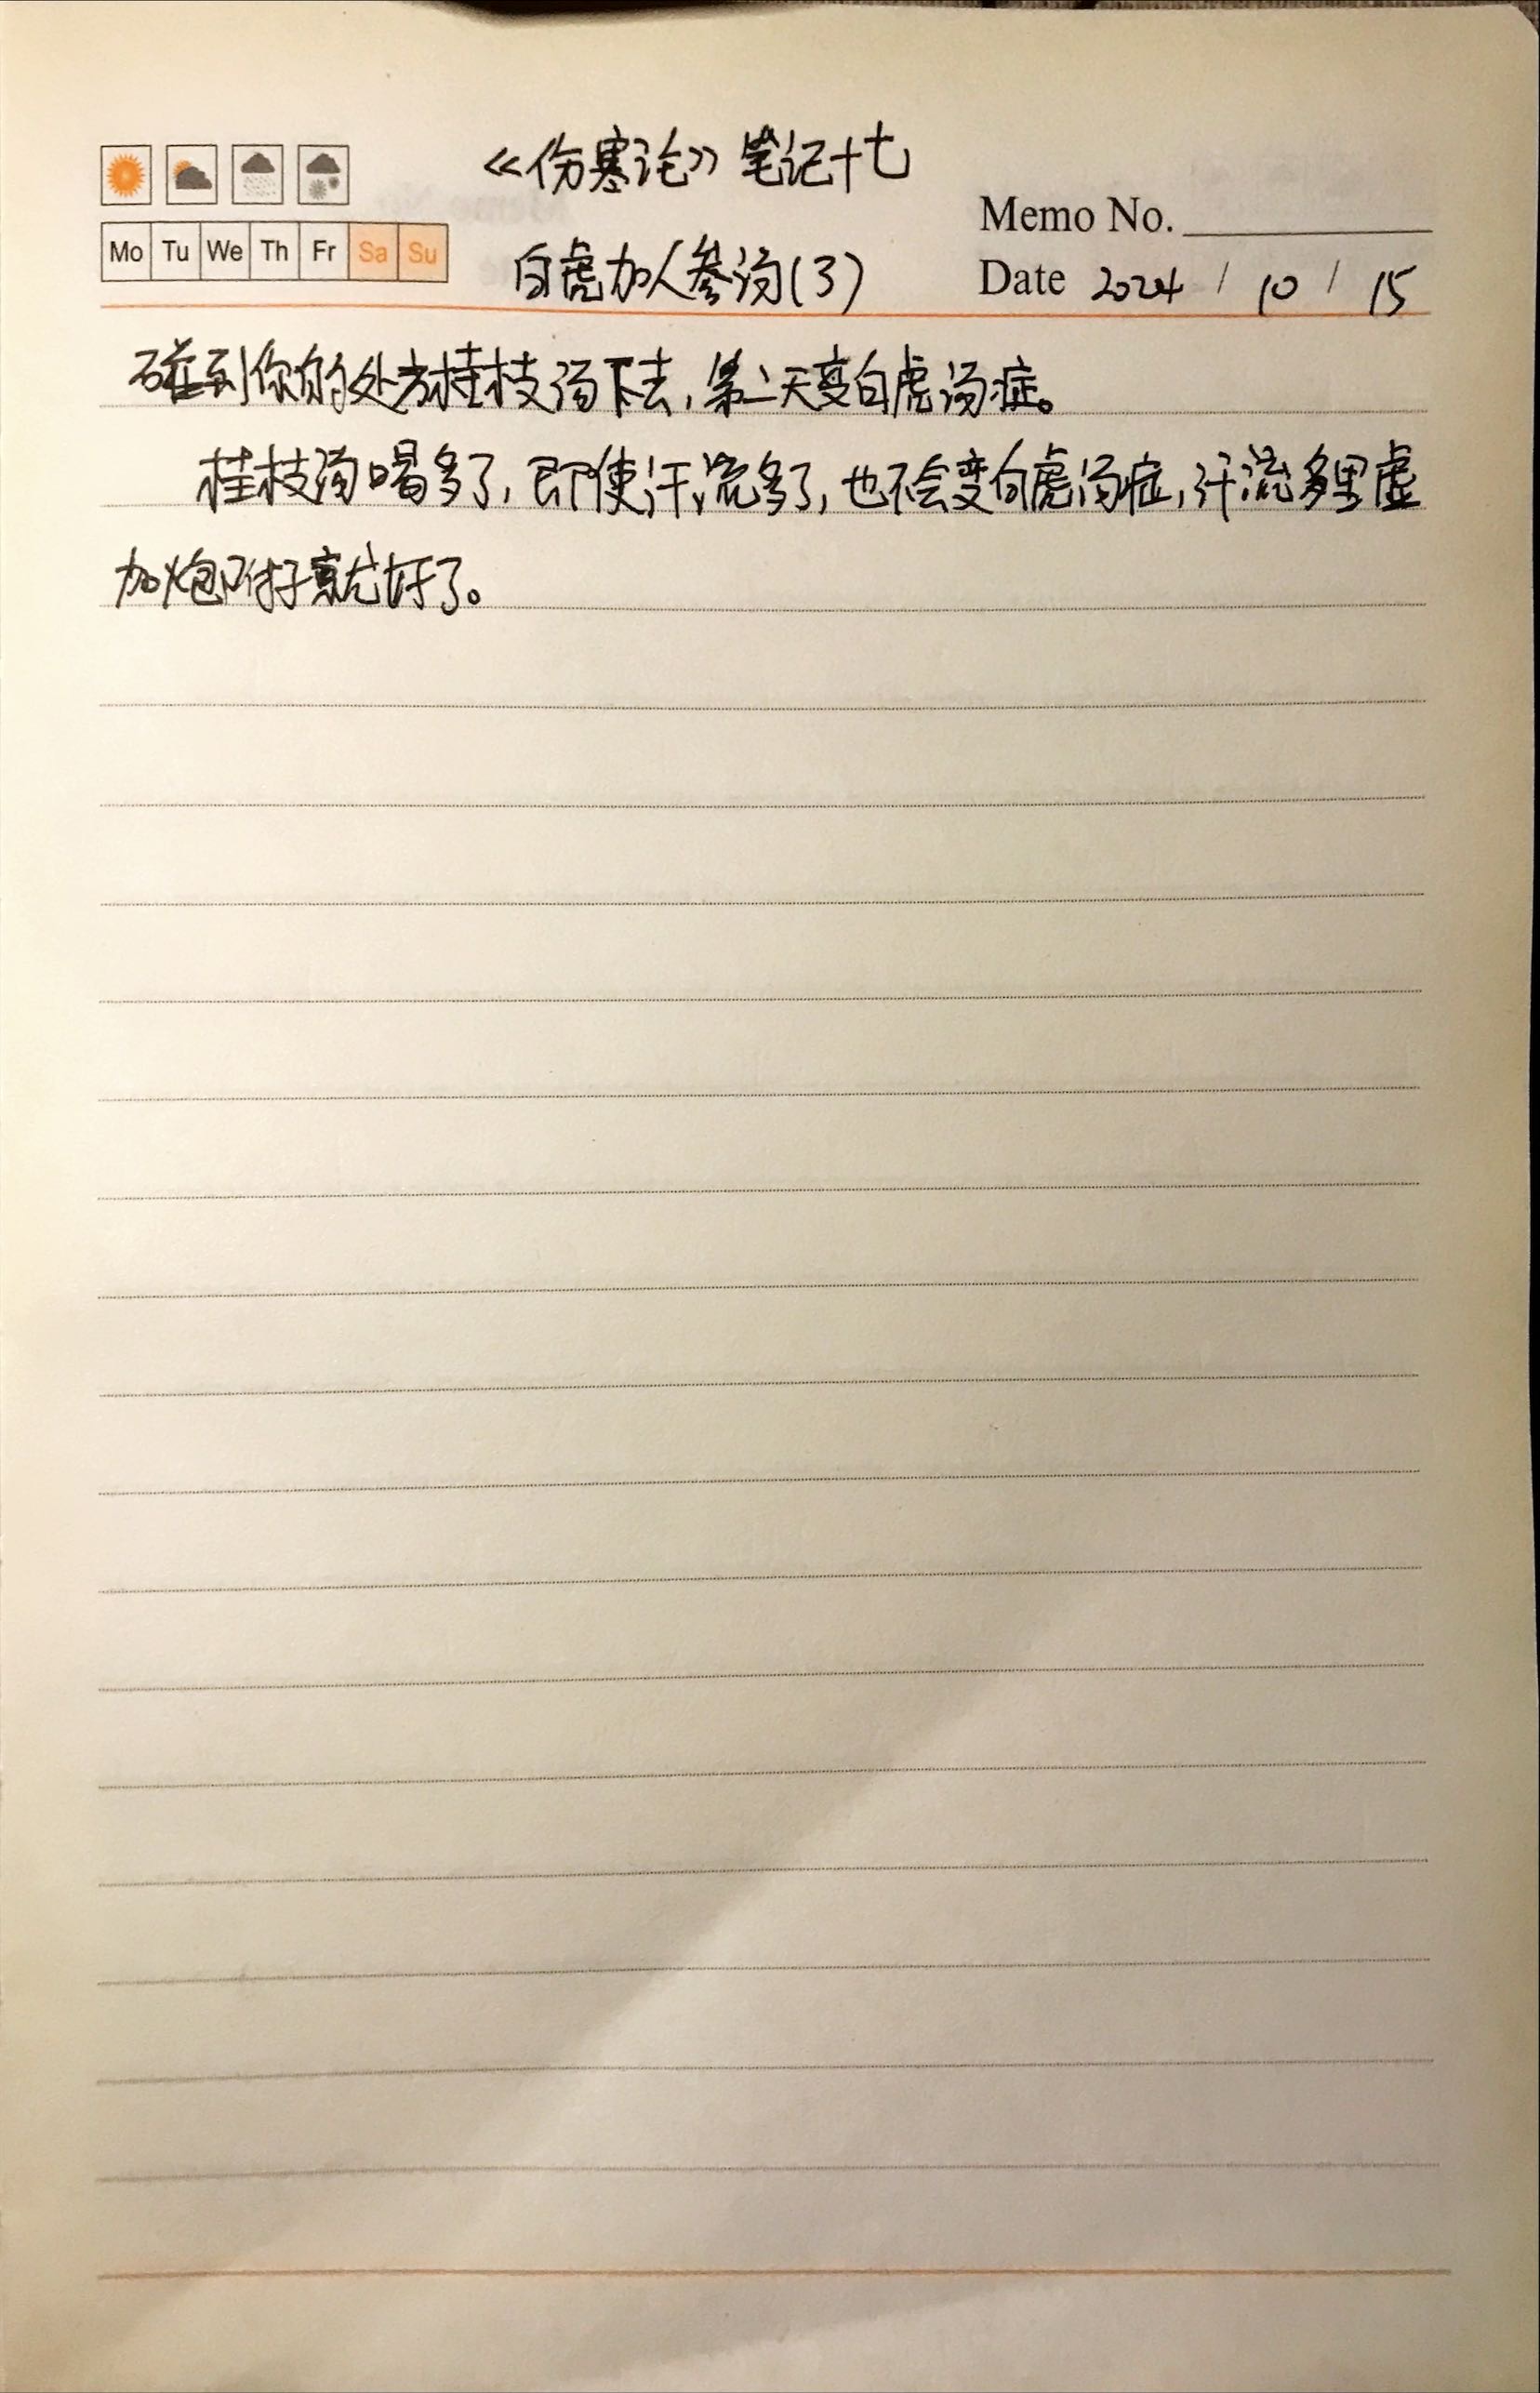 《伤寒论》笔记十七
Memo No.
Mo Tu We Th Fr Sa Su
白虎加人参汤(3)
Date 2024 / 10 / 15
碰到你的处方桂枝汤下去,第二天变白虎汤症。
桂枝汤喝多了,即使汗流多了,也不会变白虎汤症,汗流多里虚
加炮附子就好了。